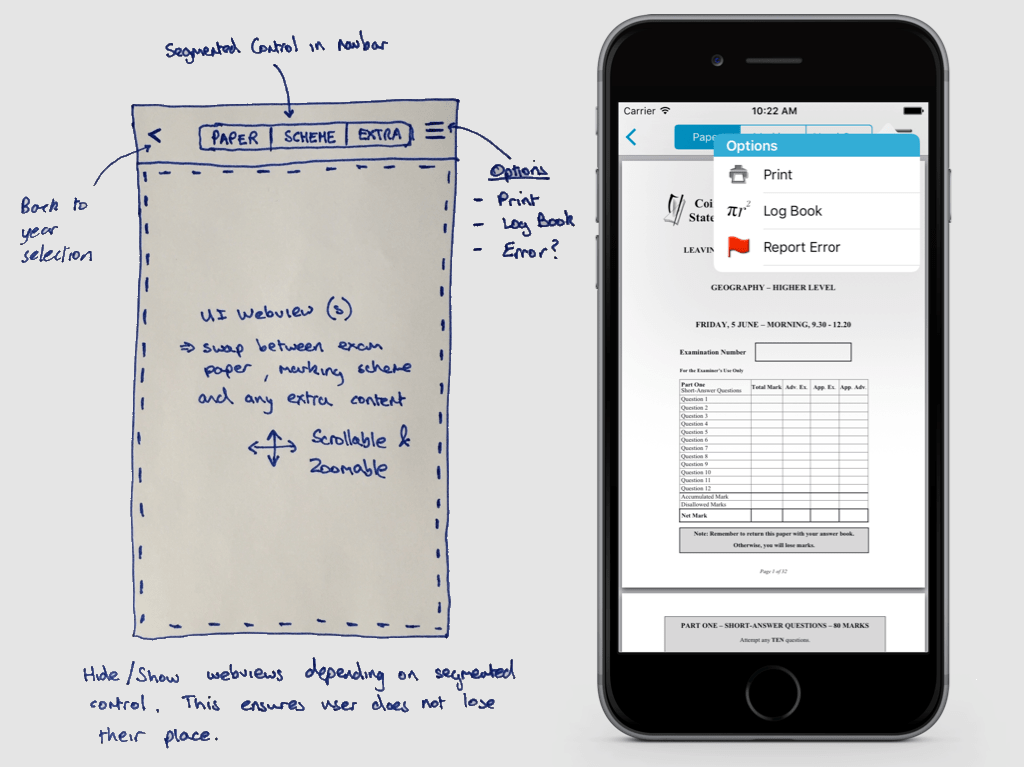 Segmented Control in navbar
<
PAPER
SCHEME
EXTRA
Back to
year
selection
Options
- Print
- Log Book
- Error?
UI Webview (s)
⇒ swap between exam
paper, marking scheme
and any extra content
Scrollable &
Zoomable
Hide/Show webviews depending on segmented
control. This ensures user does not lose
their place.
Carrier
10:22 AM
Options
Print
πr²
Log Book
Report Error
GEOGRAPHY – HIGHER LEVEL
FRIDAY, 5 JUNE – MORNING, 9.30 - 12.20
Examination Number
For the Examiner's Use Only
Part One
Short-Answer Questions
Total Mark
Adv. Ex.
App. Ex.
App. Adv.
Question 1
Question 2
Question 3
Question 4
Question 5
Question 6
Question 7
Question 8
Question 9
Question 10
Question 11
Question 12
Accumulated Mark
Disallowed Marks
Net Mark
Note: Remember to return this paper with your answer book.
Otherwise, you will lose marks.
Page 1 of 32
PART ONE – SHORT-ANSWER QUESTIONS – 80 MARKS
Attempt any TEN questions.